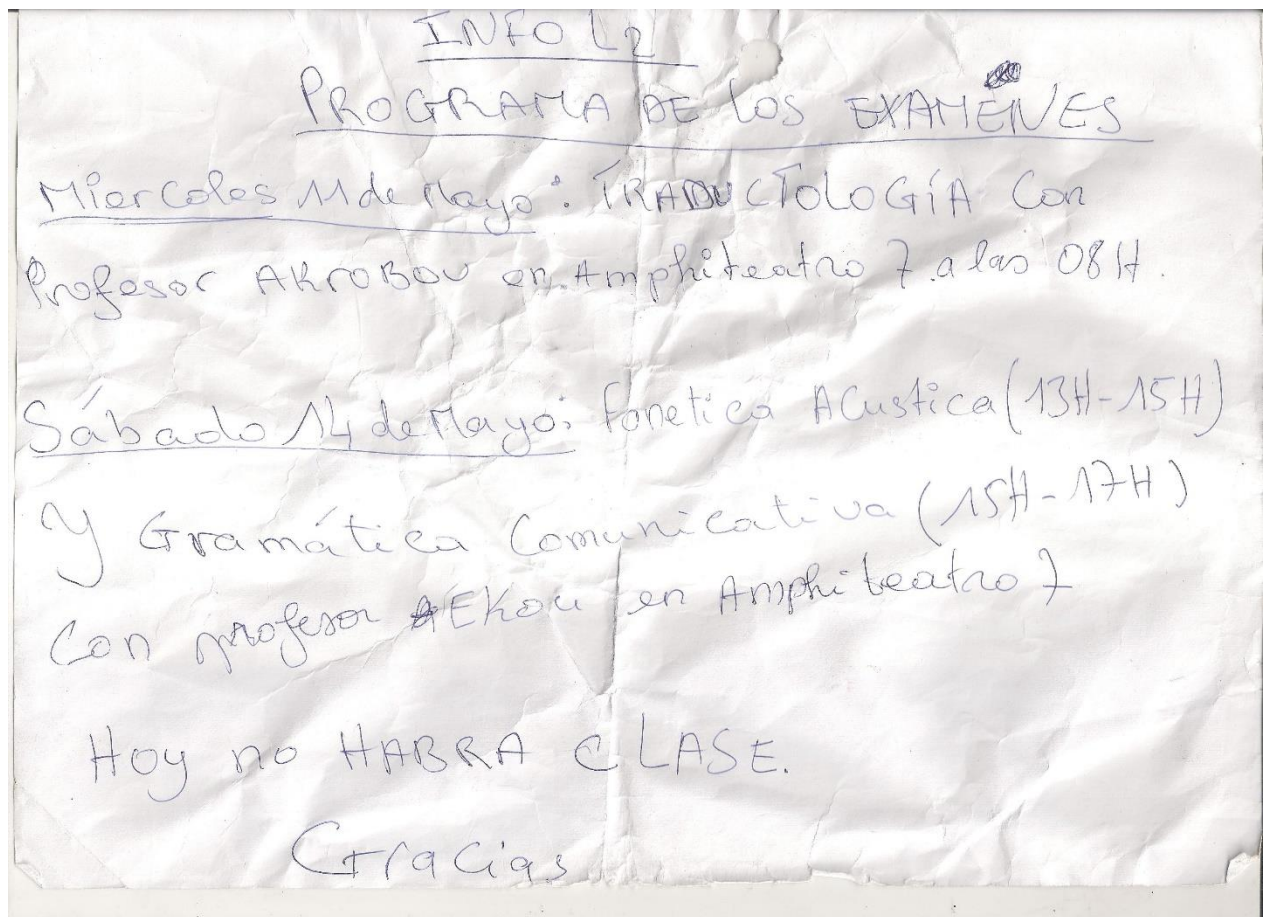 INFO L2
PROGRAMA DE LOS EXAMÉNES
Miercoles 11 de Mayo: TRADUCTOLOGÍA Con
Profesor AKROBOU en Amphiteatro 7 a las 08H.
Sábado 14 de Mayo: Fonetica Acustica (13H-15H)
Y Gramática Comunicativa (15H-17H)
Con profesor EKOU en Amphiteatro 7
Hoy no HABRA CLASE.
Gracias